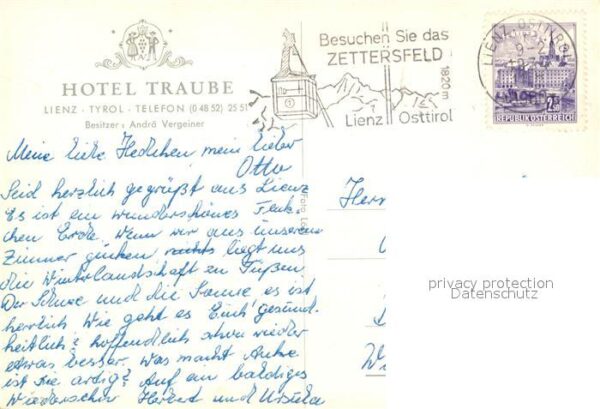 HOTEL TRAUBE
LIENZ · TYROL · TELEFON (0 48 52) 25 51
Besitzer: Andrä Vergeiner
Besuchen Sie das
ZETTERSFELD
1820m
Lienz Osttirol
LIENZ, OSTTIROL
2 S
REPUBLIK ÖSTERREICH
Meine liebe Hedlchen mein lieber
Otto
Seid herzlich gegrüßt aus Lienz
Es ist ein wunderschönes Fleck-
chen Erde. Wenn wir aus unserem
Zimmer gucken liegt uns
die Winterlandschaft zu Füßen.
Der Schnee und die Sonne es ist
herrlich Wie geht es Euch gesund-
heitlich? hoffendlich schon wieder
etwas besser. Was macht Antje
ist sie artig? Auf ein baldiges
Wiedersehen Herbert und Ursula
Foto
Herr
privacy protection
Datenschutz